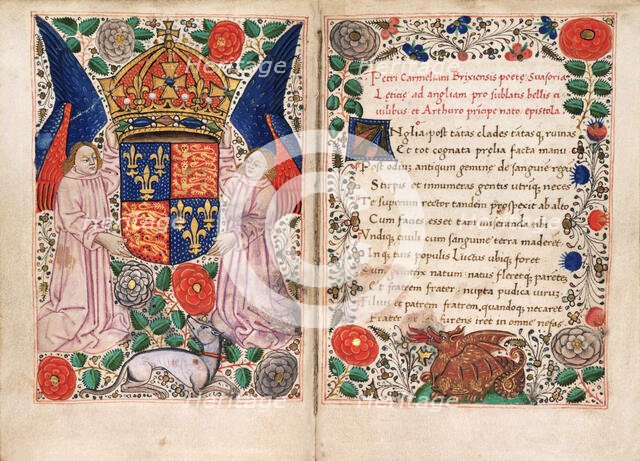 Petri Carmeliani Brixiensis poetę Suasoria
Letitię ad angliam pro sublatis bellis ci
uilibus et Arthuro prīcipe nato epistola.
Anglia post tātas clades tātasq, ruinas
Et tot cognata prelia facta manu
Post odiū antiqum geminę de sanguīe regū
Stirpis et innumeras gentis utriq, neces
Te superum rector tandem prospexit ab alto
Cum faceres esset tam miseranda tibi
Vndiq, ciuili cum sanguine terra maderet
Inq, tuis populis Luctus ubiq, foret
Cum genitrix natum natus fleretq, parētes
Et fratrem frater nupta pudica uirum
Filius et patrem fratrem, quandoq, necaret
Frater et furens iret in omne nefas
Heritage
Heritage
Heritage
Heritage
Heritage
Heritage